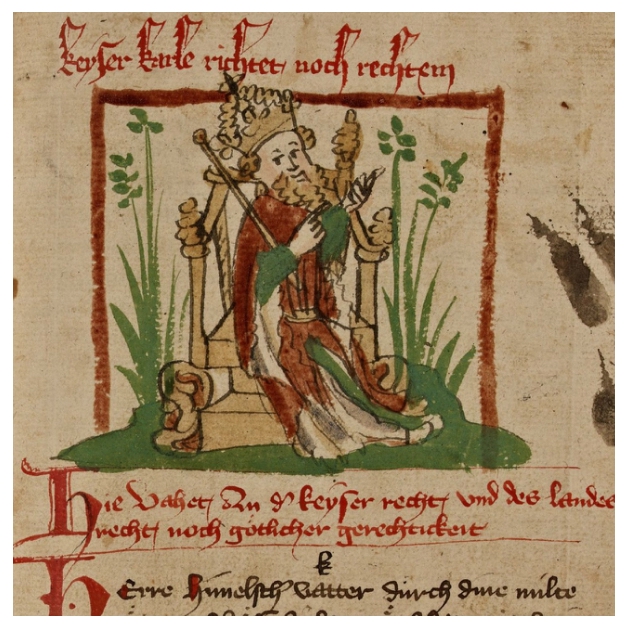 keyser karle richtet noch rechtem
Hie vahet an d' keyser recht vnd des landes
recht noch gotlicher gerechtickeit
k
HErre himelsch vatter durch dine milte